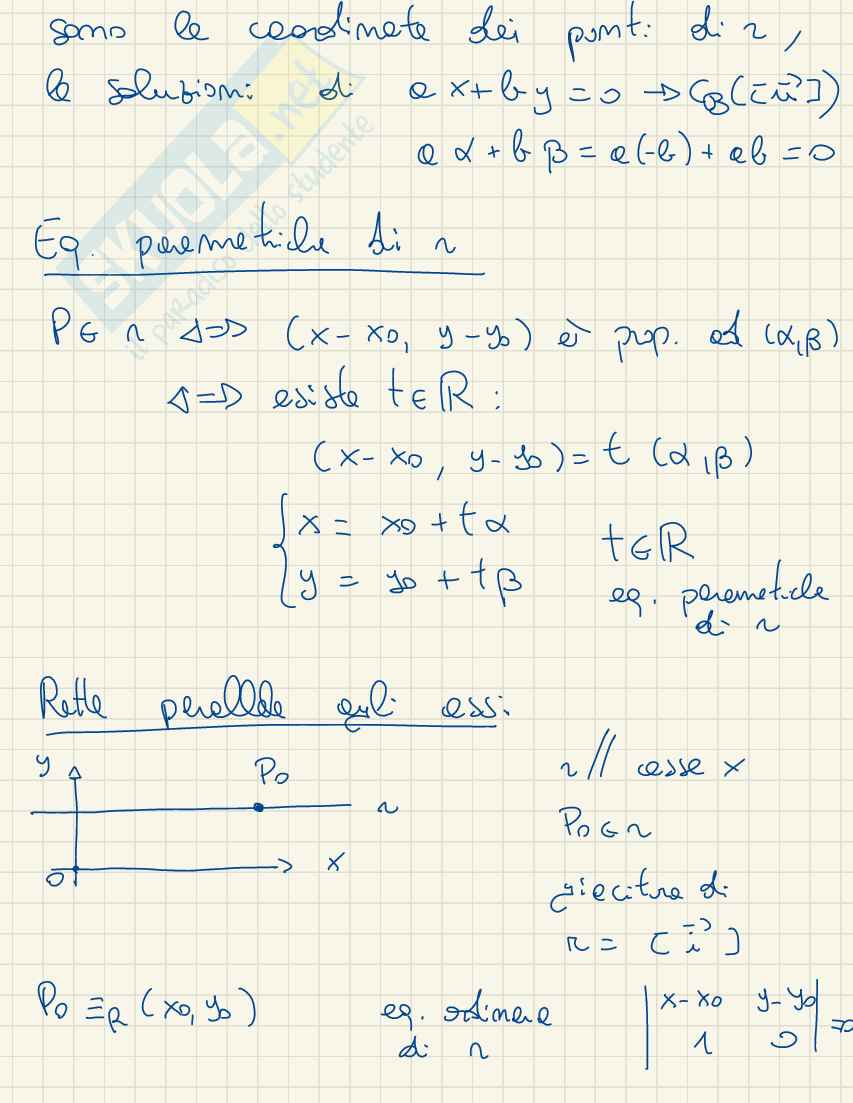 sono le coordinate dei punti di r,
le soluzioni di ax+by=0 → C_B([u⃗])
aα+bβ=a(-b)+ab=0
SKUOLA.net
il paradiso dello studente
Eq. parametriche di r
P∈r ⇔ (x-x0, y-y0) è prop. ad (α,β)
⇔ esiste t∈ℝ:
(x-x0, y-y0)=t (α,β)
{x = x0+tα
{y = y0+tβ
t∈ℝ
eq. parametriche
di r
Rette parallele agli assi
y P0
r
x
O
r // asse x
P0∈r
giacitura di
r = [i⃗]
P0 ≡_R (x0,y0)
eq. ordinaria
di r
|x-x0 y-y0|
|1 0| =0